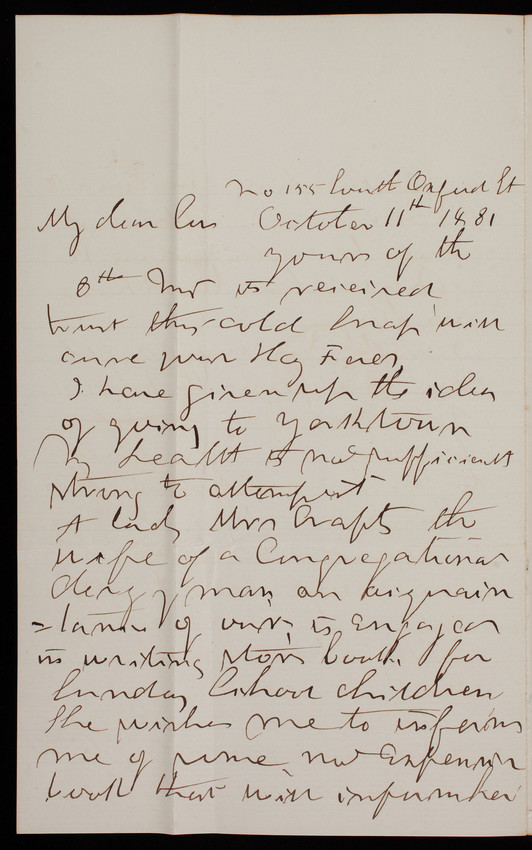 No 155 South Oxford St
My dear Cas October 11th 1881
yours of the
8th Inst is received
trust this cold snap will
cure your Hay Fever,
I have given up the idea
of going to Yorktown
My health is not sufficiently
strong to attempt it
A lady Mrs Crafts the
wife of a Congregational
clergyman an acquain
=tance of ours is engaged
in writing story books for
Sunday School children
She wishes me to inform
me of some not Expensive
book that will inform her